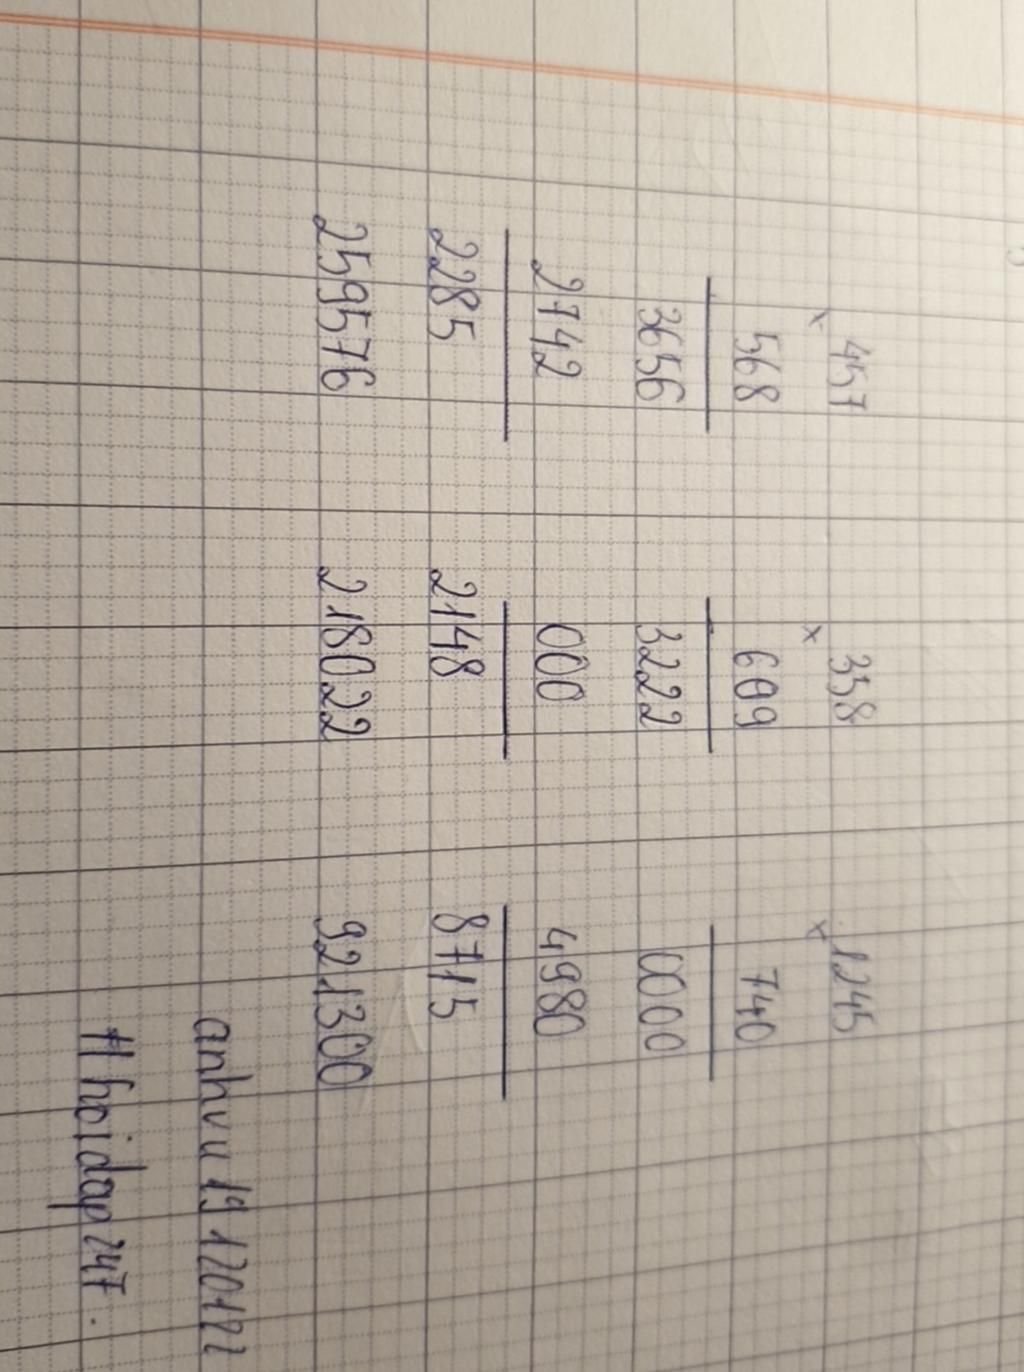 457
×
568
3656
2742
2285
259576
358
×
609
3222
000
2148
218022
1245
×
740
0000
4980
8715
921300
anhvu19120122
#hoidap247.